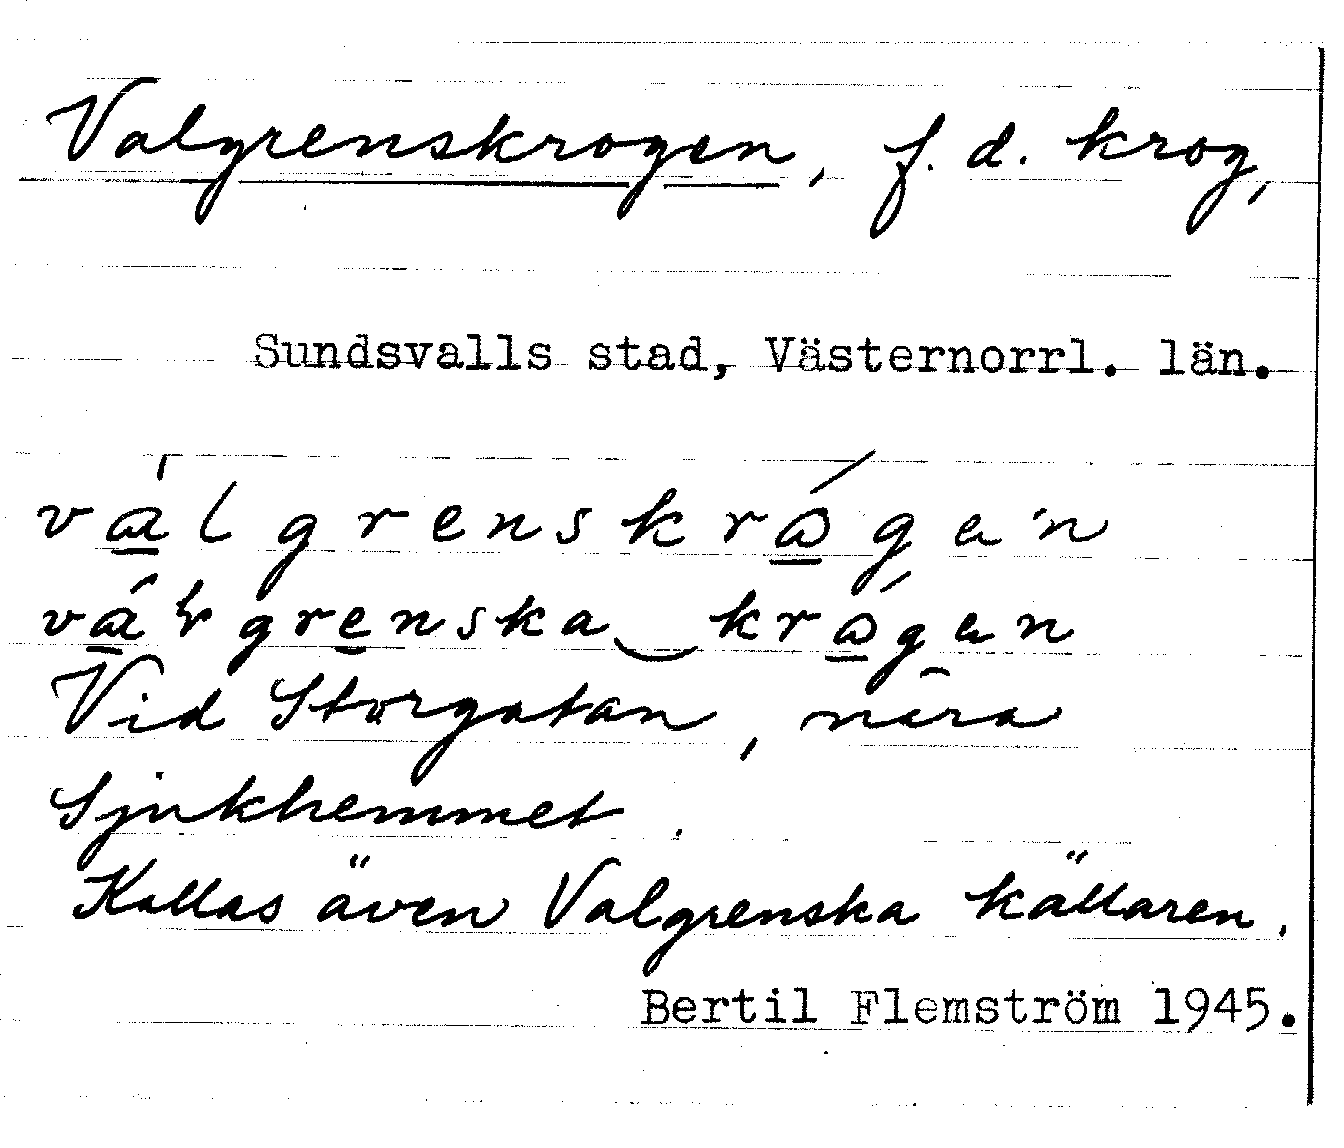 Valgrenskrogen, f. d. krog,
Sundsvalls stad, Västernorrl. län.
Vid Storgatan, nära
Sjukhemmet.
Kallas även Valgrenska källaren.
Bertil Flemström 1945.